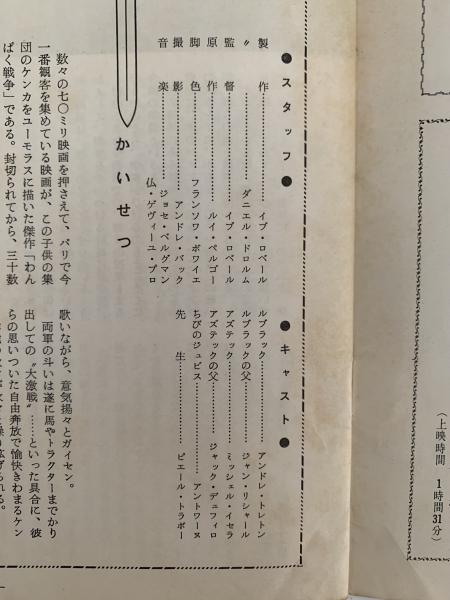 (上映時間 1時間31分)
●スタッフ●
製作……イブ・ロベール
〃……ダニエル・ドロルム
監督……イブ・ロベール
原作……ルイ・ペルゴー
脚色……フランソワ・ボワイエ
撮影……アンドレ・バック
音楽……ジョセ・ベルグマン
仏・ゲヴィーユ・プロ
●キャスト●
ルブラック……アンドレ・トレトン
ルブラックの父……ジャン・リシャール
アズテック……ミッシェル・イセラ
アズテックの父……ジャック・デュフィロ
ちびのジュビス……アントワーヌ
先生……ピエール・トラボー
かいせつ
数々の七〇ミリ映画を押さえて、パリで今
一番観客を集めている映画が、この子供の集
団のケンカをユーモラスに描いた傑作「わん
ぱく戦争」である。封切られてから、三十数
歌いながら、意気揚々とガイセン。
両軍の斗いは遂に馬やトラクターまでかり
出しての〝大激戦〟……といった具合に、彼
らの思いついた自由奔放で愉快きわまるケン